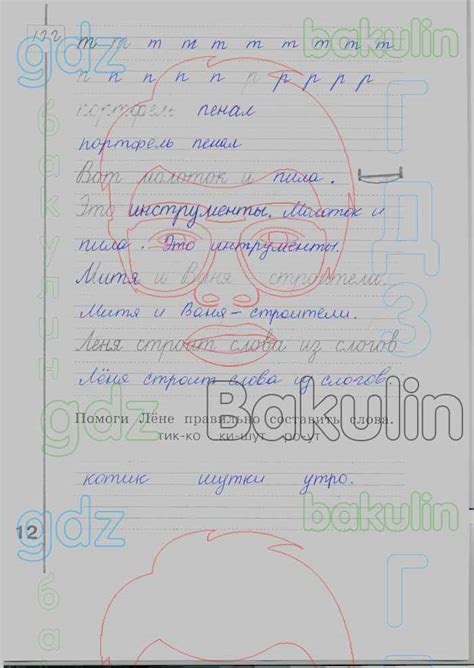 122
gdz
bakulin
т т т т т т т т т т
п п п п п п р р р р р
портфель пенал
портфель пенал
Вот молоток и пила.
Это инструменты. Молоток и
пила. Это интрументы.
Митя и Ваня строители.
Митя и Ваня – строители.
Лёня строит слова из слогов
Лёня строит слова из слогов
Bakulin
gdz
Помоги Лёне правильно составить слова.
тик-ко ки-шут ро-ут
котик шутки утро.
12
gdz
bakulin
бакулин
ГДЗ
ба
Г